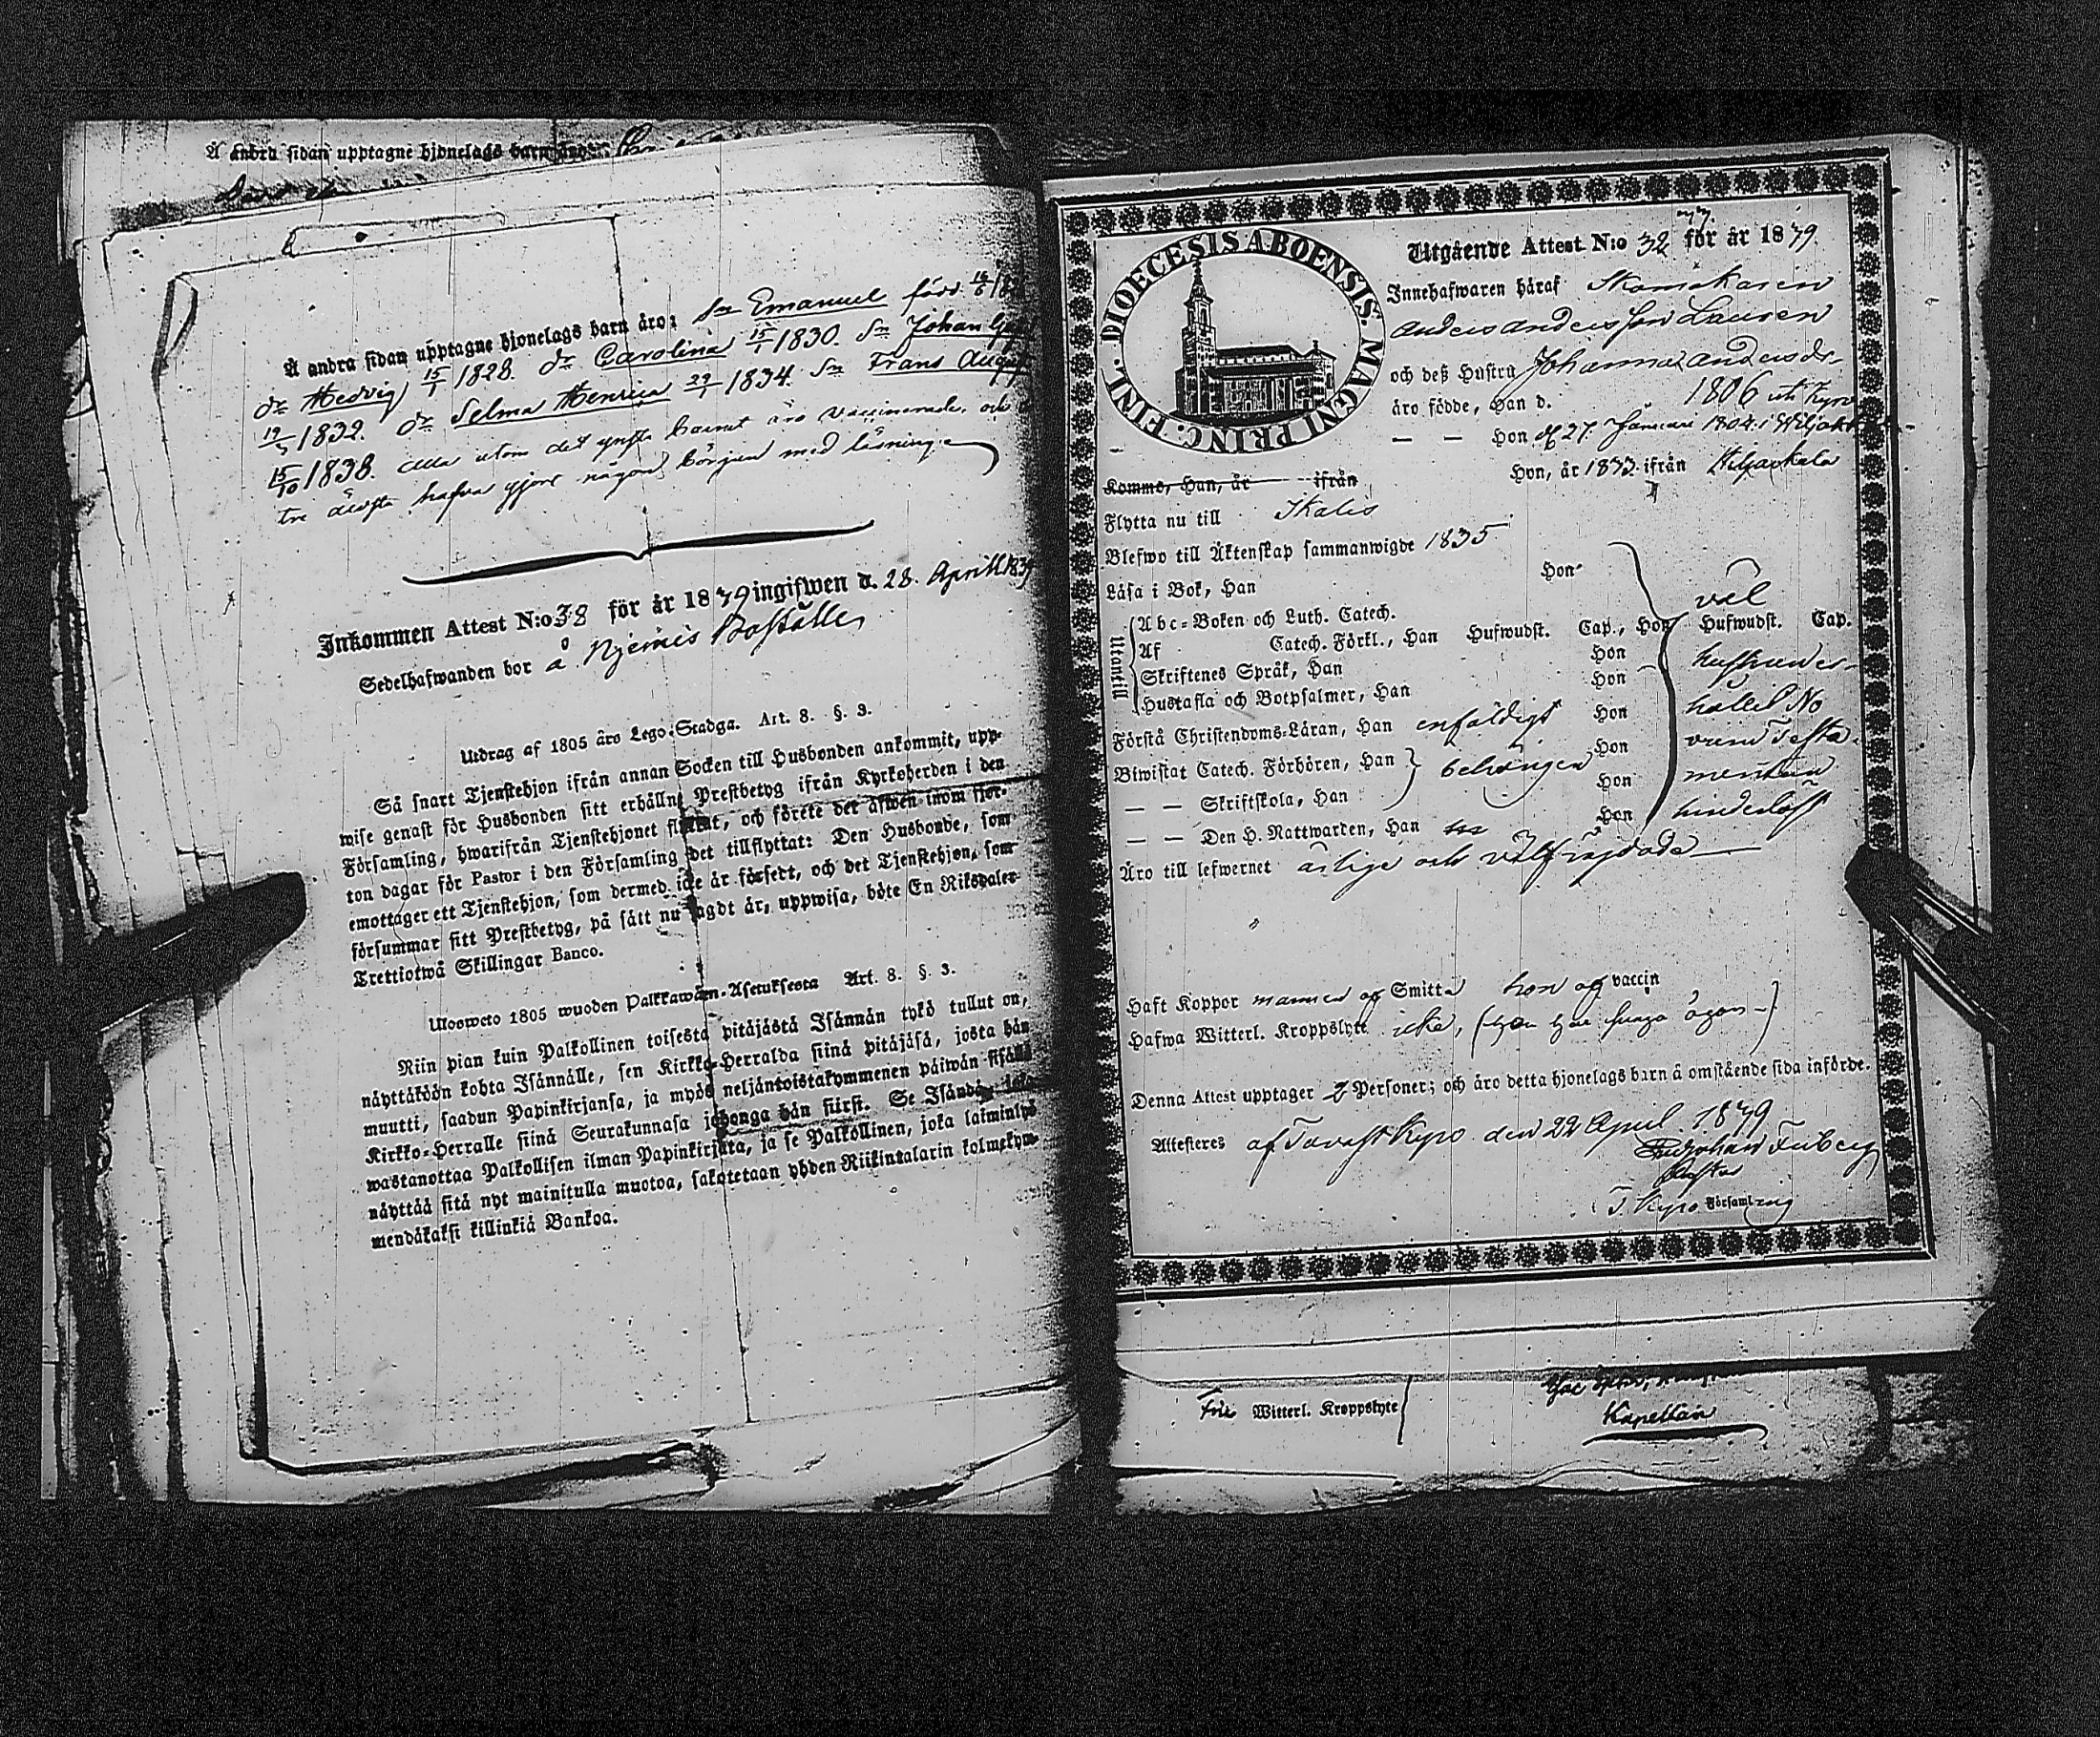 Å andra sidan upptagne hjonelags barn äro:
Å andra sidan upptagne hjonelags barn äro: Sn Emanuel född
dr Hedvig 15/1 1828. dr Carolina 15/1 1830. Sn Johan
1832. dr Selma Henrica 29/1 1834. Sn Frans August
15/10 1838. alla utom det yngsta barnet äro vaccinerade, och
tre äldsta hafva gjort någon början med läsning
Inkommen Attest N:o 38 för år 1839 ingifwen d. 28. Aprill 1839
Sedelhafwanden bor å Njemis Boställe
Utdrag af 1805 års Lego-Stadga. Art. 8. §. 3.
Så snart Tjenstehjon ifrån annan Socken till Husbonden ankommit, upp-
wise genast för Husbonden sitt erhållne Prestbetyg ifrån Kyrkoherden i den
Församling, hwarifrån Tjenstehjonet flyttat, och förete det äfwen inom fjor-
ton dagar för Pastor i den Församling det tillflyttat: Den Husbonde, som
emottager ett Tjenstehjon, som dermed icke är försedt, och det Tjenstehjon, som
försummar sitt Prestbetyg, på sätt nu sagdt är, uppwisa, böte En Riksdaler
Trettiotwå Skillingar Banco.
Ulosweto 1805 wuoden Palkkawäen-Asetuksesta Art. 8. §. 3.
Niin pian kuin Palkollinen toisesta pitäjästä Isännän tykö tullut on,
näyttäköön kohta Isännälle, sen Kirkko-Herralda siinä pitäjäsä, josta hän
muutti, saadun Papinkirjansa, ja myös neljäntoistakymmenen päiwän sisällä
Kirkko-Herralle siinä Seurakunnasa johonga hän siirsi. Se Isändä, joka
wastanottaa Palkollisen ilman Papinkirjata, ja se Palkollinen, joka laiminlyö
näyttää sitä nyt mainitulla muotoa, sakotetaan yhden Riikintalarin kolmekym-
mendäkaksi killinkiä Bankoa.
DIOECESIS ABOENSIS. MAGNI PRINC. FINL.
Utgående Attest N:o 32 för år 1839.
Innehafwaren häraf
Anders Andersson Lauren
och deß Hustru Johanna Andersdr
äro födde, Han d. 1806 uti Kyro
— — Hon d 27 Januari 1804 i
Komme, Han, år ifrån Hon, år 1833 ifrån
Flytta nu till Ikalis
Blefwo till Äktenskap sammanwigde 1835
Läsa i Bok, Han Hon väl
Utantill
Abc-Boken och Luth. Catech.
Af Catech. Förkl., Han Hufwudst. Cap., Hon Hufwudst. Cap.
Skriftenes Språk, Han Hon
Hustafla och Botpsalmer, Han Hon
Förstå Christendoms-Läran, Han enfaldigt Hon
Biwistat Catech. Förhören, Han behörigen Hon
— — Skriftskola, Han Hon
— — Den H. Nattwarden, Han Hon
Äro till lefwernet ärlige och välfrägdade
Haft Koppor mannen af Smitta hon af vaccin
Hafwa Witterl. Kroppslyte icke, (hon har svaga ögon)
Denna Attest upptager 2 Personer; och äro detta hjonelags barn å omstående sida införde.
Attesteres af Tavast Kyro den 22 April 1839
Pastor
T. Kyro Församling
Fri Witterl. Kroppslyte
Kapellan